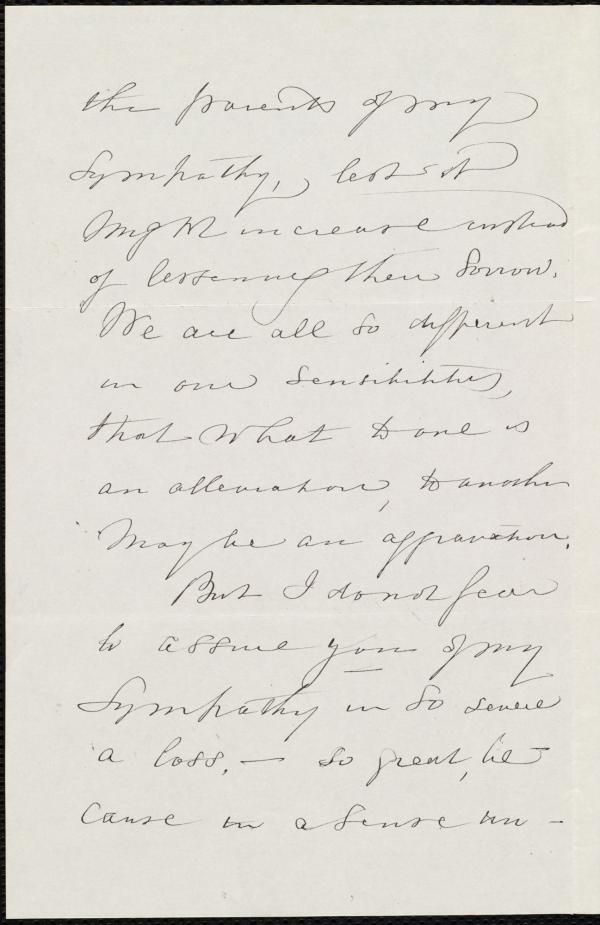 the parents of my
sympathy, lest it
might increase instead
of lessening their sorrow.
We are all so different
in our sensibilities,
that what to one is
an alleviation, to another
may be an aggravation.
But I do not fear
to assure you of my
sympathy in so severe
a loss, — so great, be-
cause in a sense un-